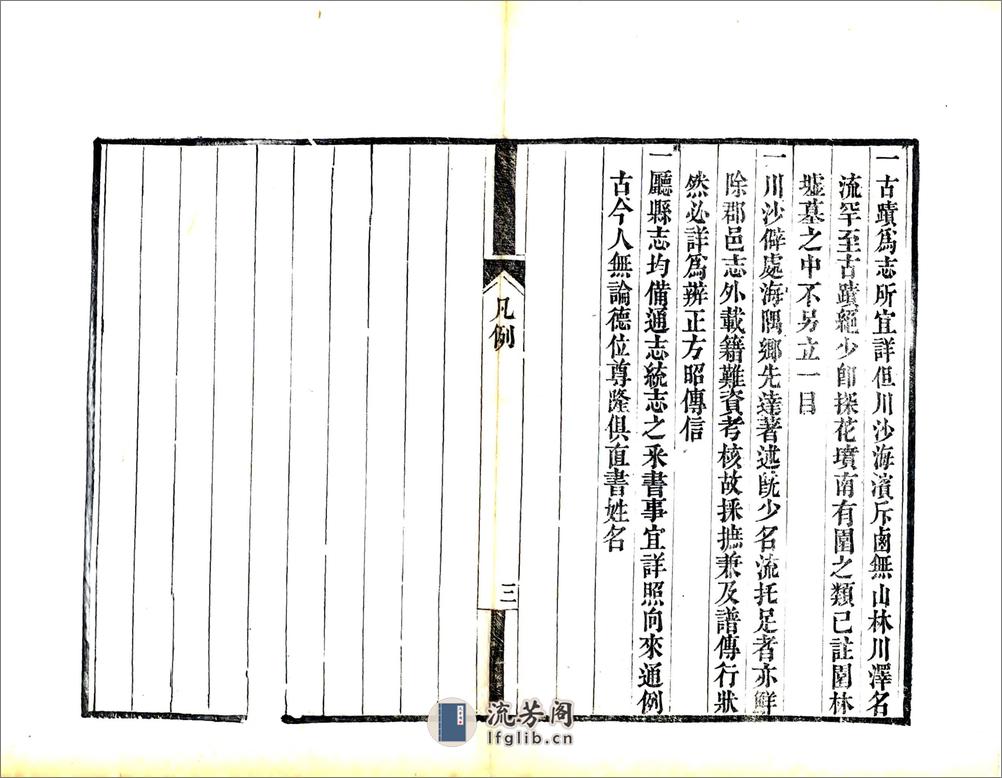 一古蹟爲志所宜詳但川沙海濱斥鹵無山林川澤名
流罕至古蹟絕少卽採花墳南有園之類已註園林
墟墓之中不另立一目
一川沙僻處海隅鄉先達著述旣少名流托足者亦鮮
除郡邑志外載籍難資考核故採摭兼及譜傳行狀
然必詳爲辨正方昭傳信
一廳縣志均備通志統志之釆書事宜詳照向來通例
古今人無論德位尊隆俱直書姓名
凡例
三
流芳阁
lfglib.cn